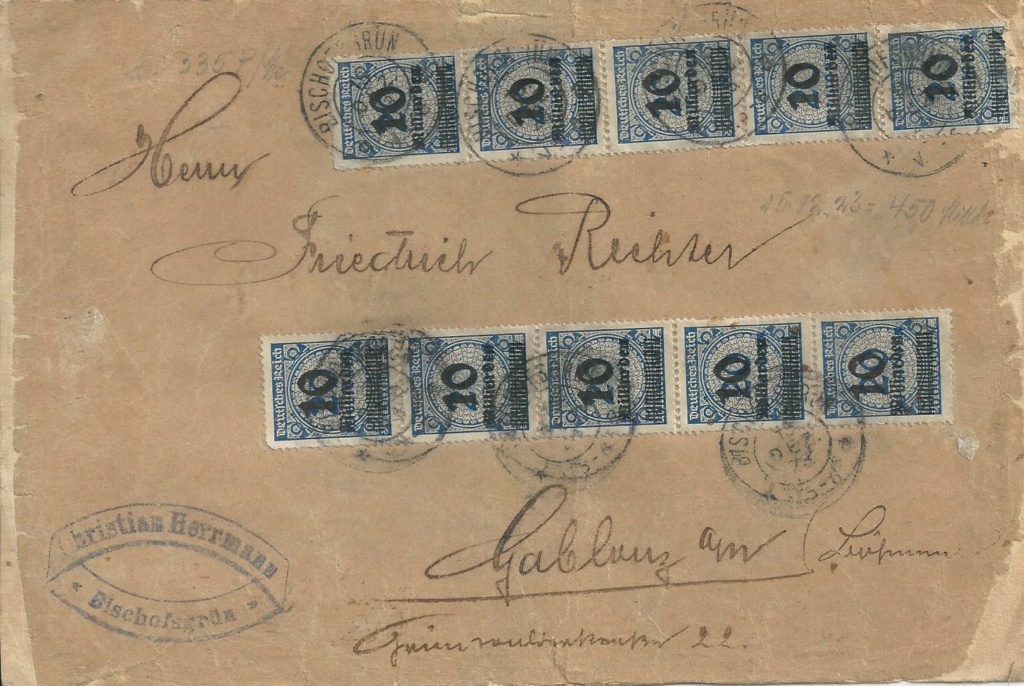 BISCHOFSGRÜN
Deutsches Reich 10 Milliarden
Deutsches Reich 10 Milliarden
Deutsches Reich 10 Milliarden
Deutsches Reich 10 Milliarden
Deutsches Reich 10 Milliarden
Herrn
15.12.23 = 450
Friedrich Richter
Deutsches Reich 10 Milliarden
Deutsches Reich 10 Milliarden
Deutsches Reich 10 Milliarden
Deutsches Reich 10 Milliarden
Deutsches Reich 10 Milliarden
Christian Herrmann
Bischofsgrün
Gablonz a/n (Böhmen
22.